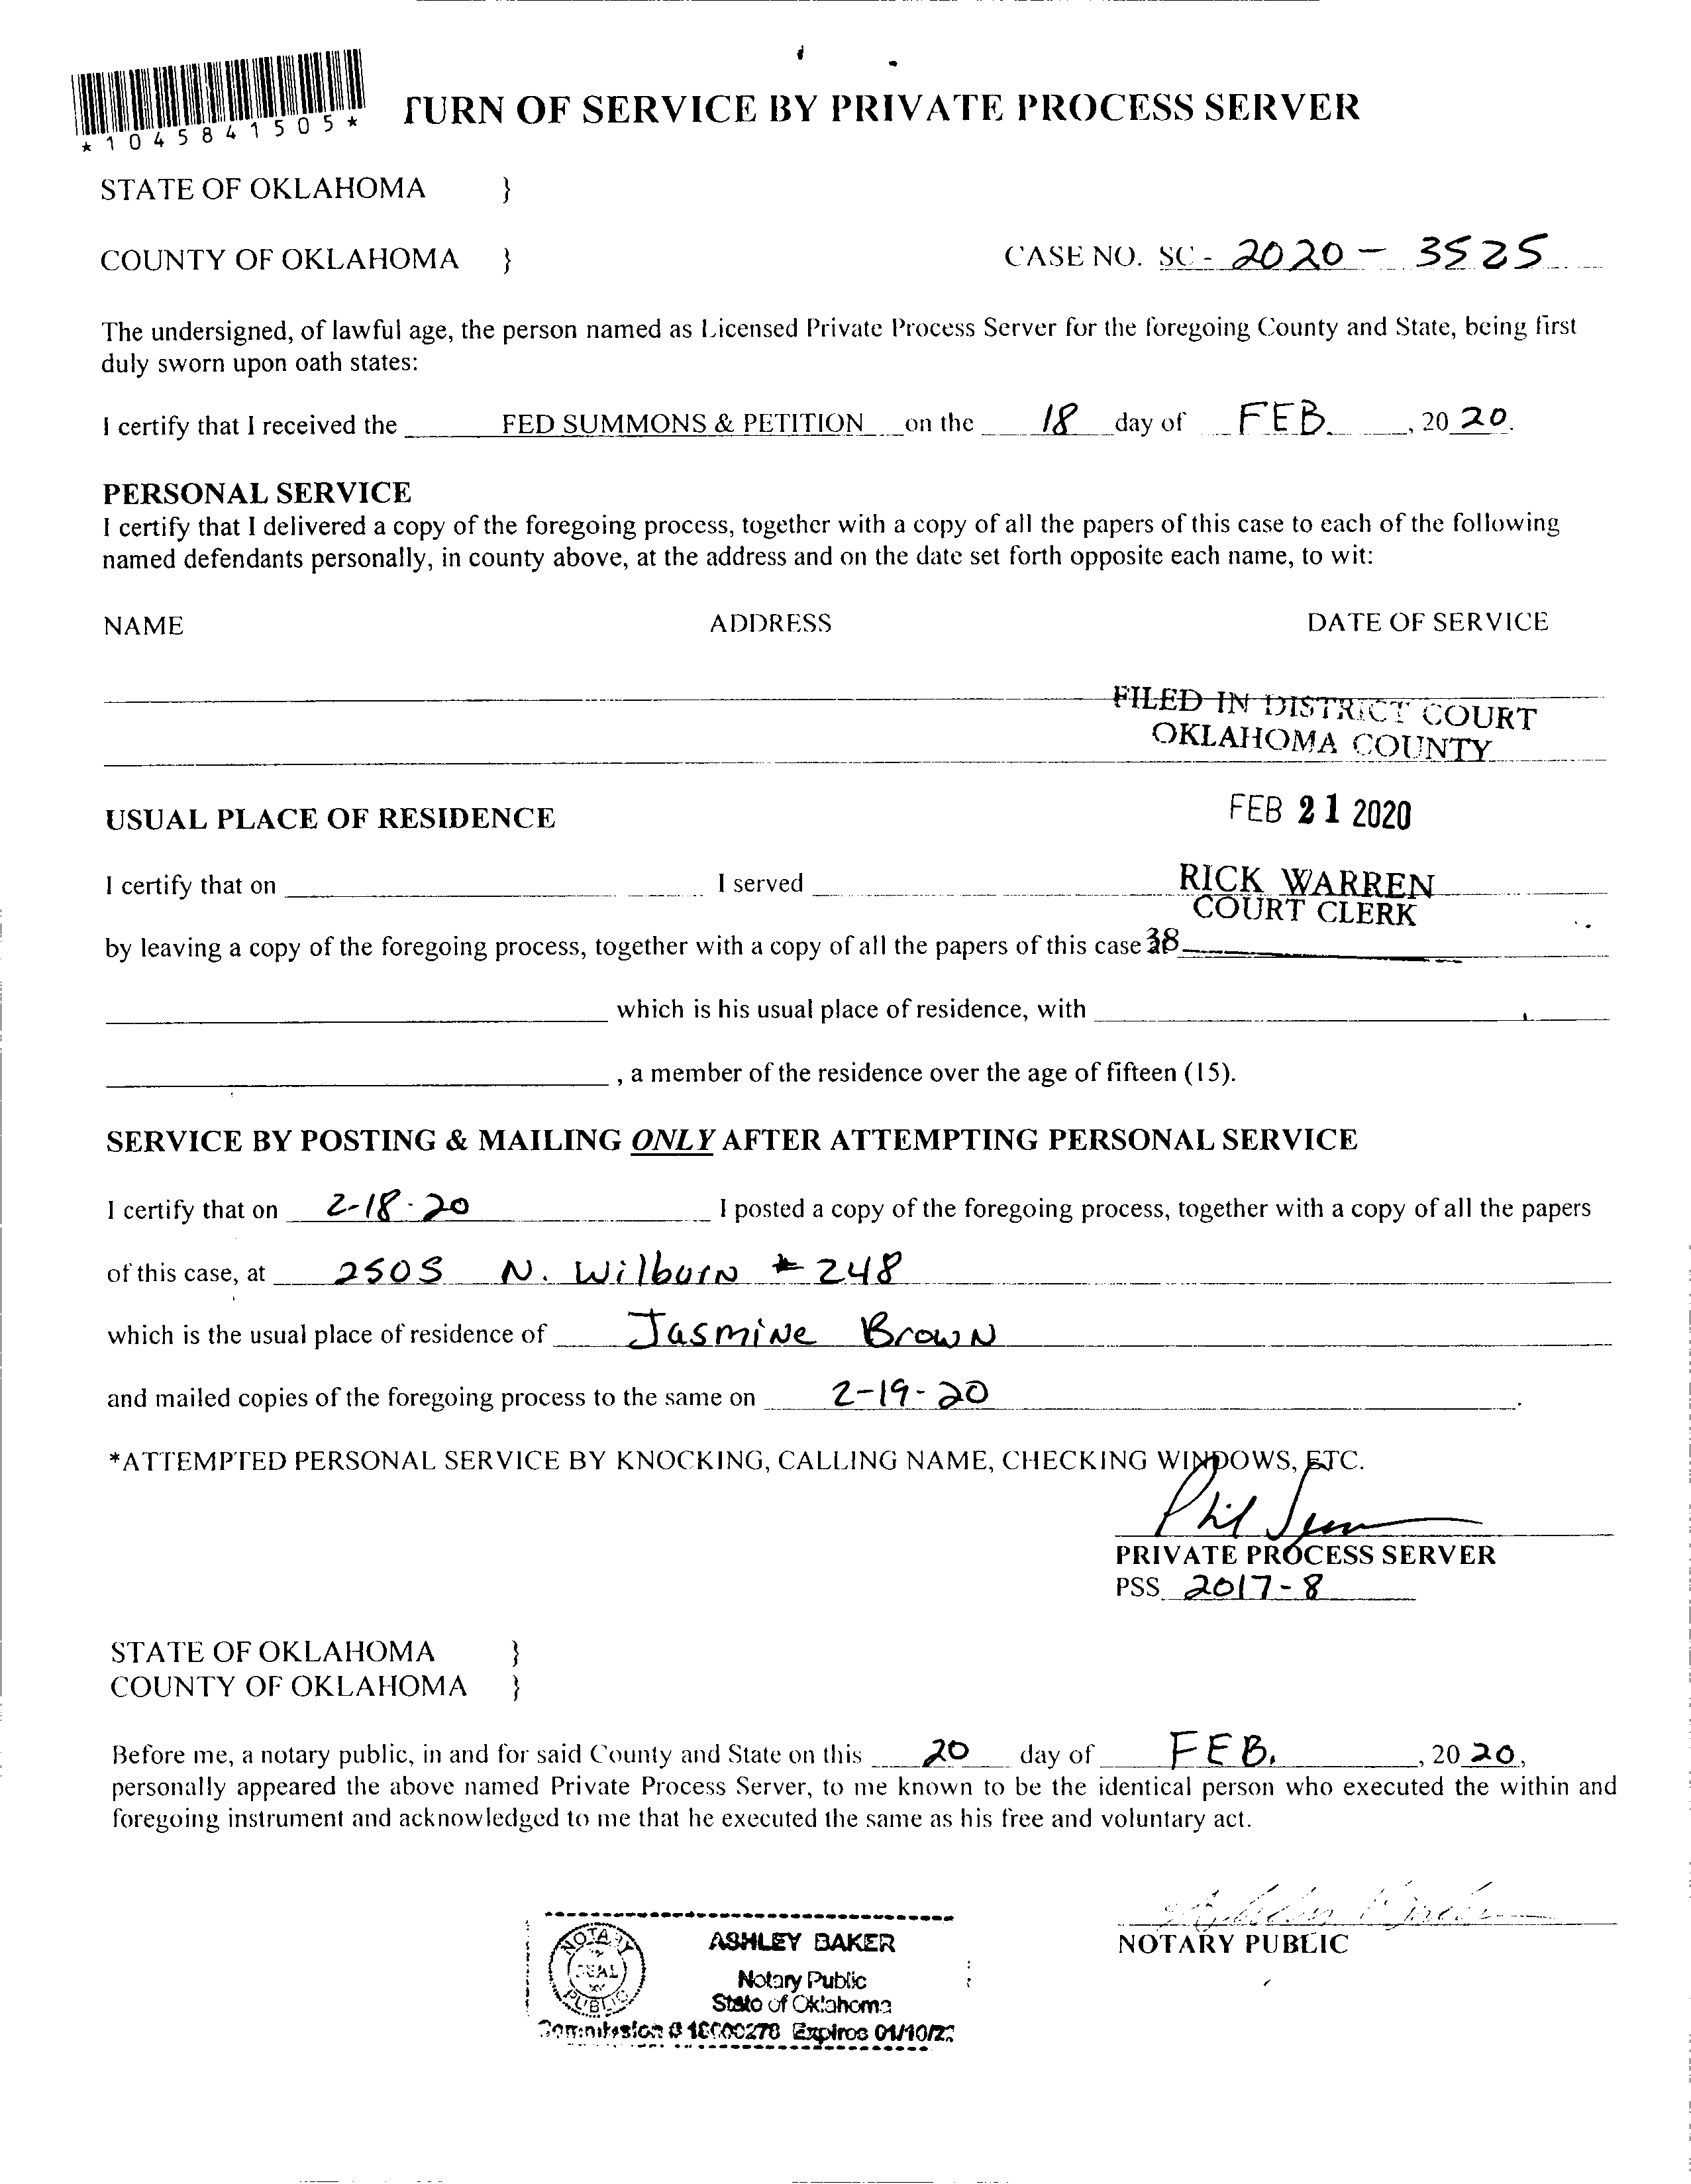 *1045841505*
TURN OF SERVICE BY PRIVATE PROCESS SERVER
STATE OF OKLAHOMA }
COUNTY OF OKLAHOMA } CASE NO. SC - 2020 - 3525
The undersigned, of lawful age, the person named as Licensed Private Process Server for the foregoing County and State, being first
duly sworn upon oath states:
I certify that I received the FED SUMMONS & PETITION on the 18 day of FEB. , 20 20.
PERSONAL SERVICE
I certify that I delivered a copy of the foregoing process, together with a copy of all the papers of this case to each of the following
named defendants personally, in county above, at the address and on the date set forth opposite each name, to wit:
NAME ADDRESS DATE OF SERVICE
FILED IN DISTRICT COURT
OKLAHOMA COUNTY
USUAL PLACE OF RESIDENCE FEB 21 2020
I certify that on I served RICK WARREN
COURT CLERK
by leaving a copy of the foregoing process, together with a copy of all the papers of this case 38
which is his usual place of residence, with
, a member of the residence over the age of fifteen (15).
SERVICE BY POSTING & MAILING ONLY AFTER ATTEMPTING PERSONAL SERVICE
I certify that on 2-18-20 I posted a copy of the foregoing process, together with a copy of all the papers
of this case, at 2505 N. Wilburn # 248
which is the usual place of residence of Jasmine Brown
and mailed copies of the foregoing process to the same on 2-19-20 .
*ATTEMPTED PERSONAL SERVICE BY KNOCKING, CALLING NAME, CHECKING WINDOWS, ETC.
Phil
PRIVATE PROCESS SERVER
PSS 2017-8
STATE OF OKLAHOMA }
COUNTY OF OKLAHOMA }
Before me, a notary public, in and for said County and State on this 20 day of FEB. , 20 20,
personally appeared the above named Private Process Server, to me known to be the identical person who executed the within and
foregoing instrument and acknowledged to me that he executed the same as his free and voluntary act.
NOTARY PUBLIC
NOTARY
SEAL
PUBLIC
ASHLEY BAKER
Notary Public
State of Oklahoma
Commission # Expires